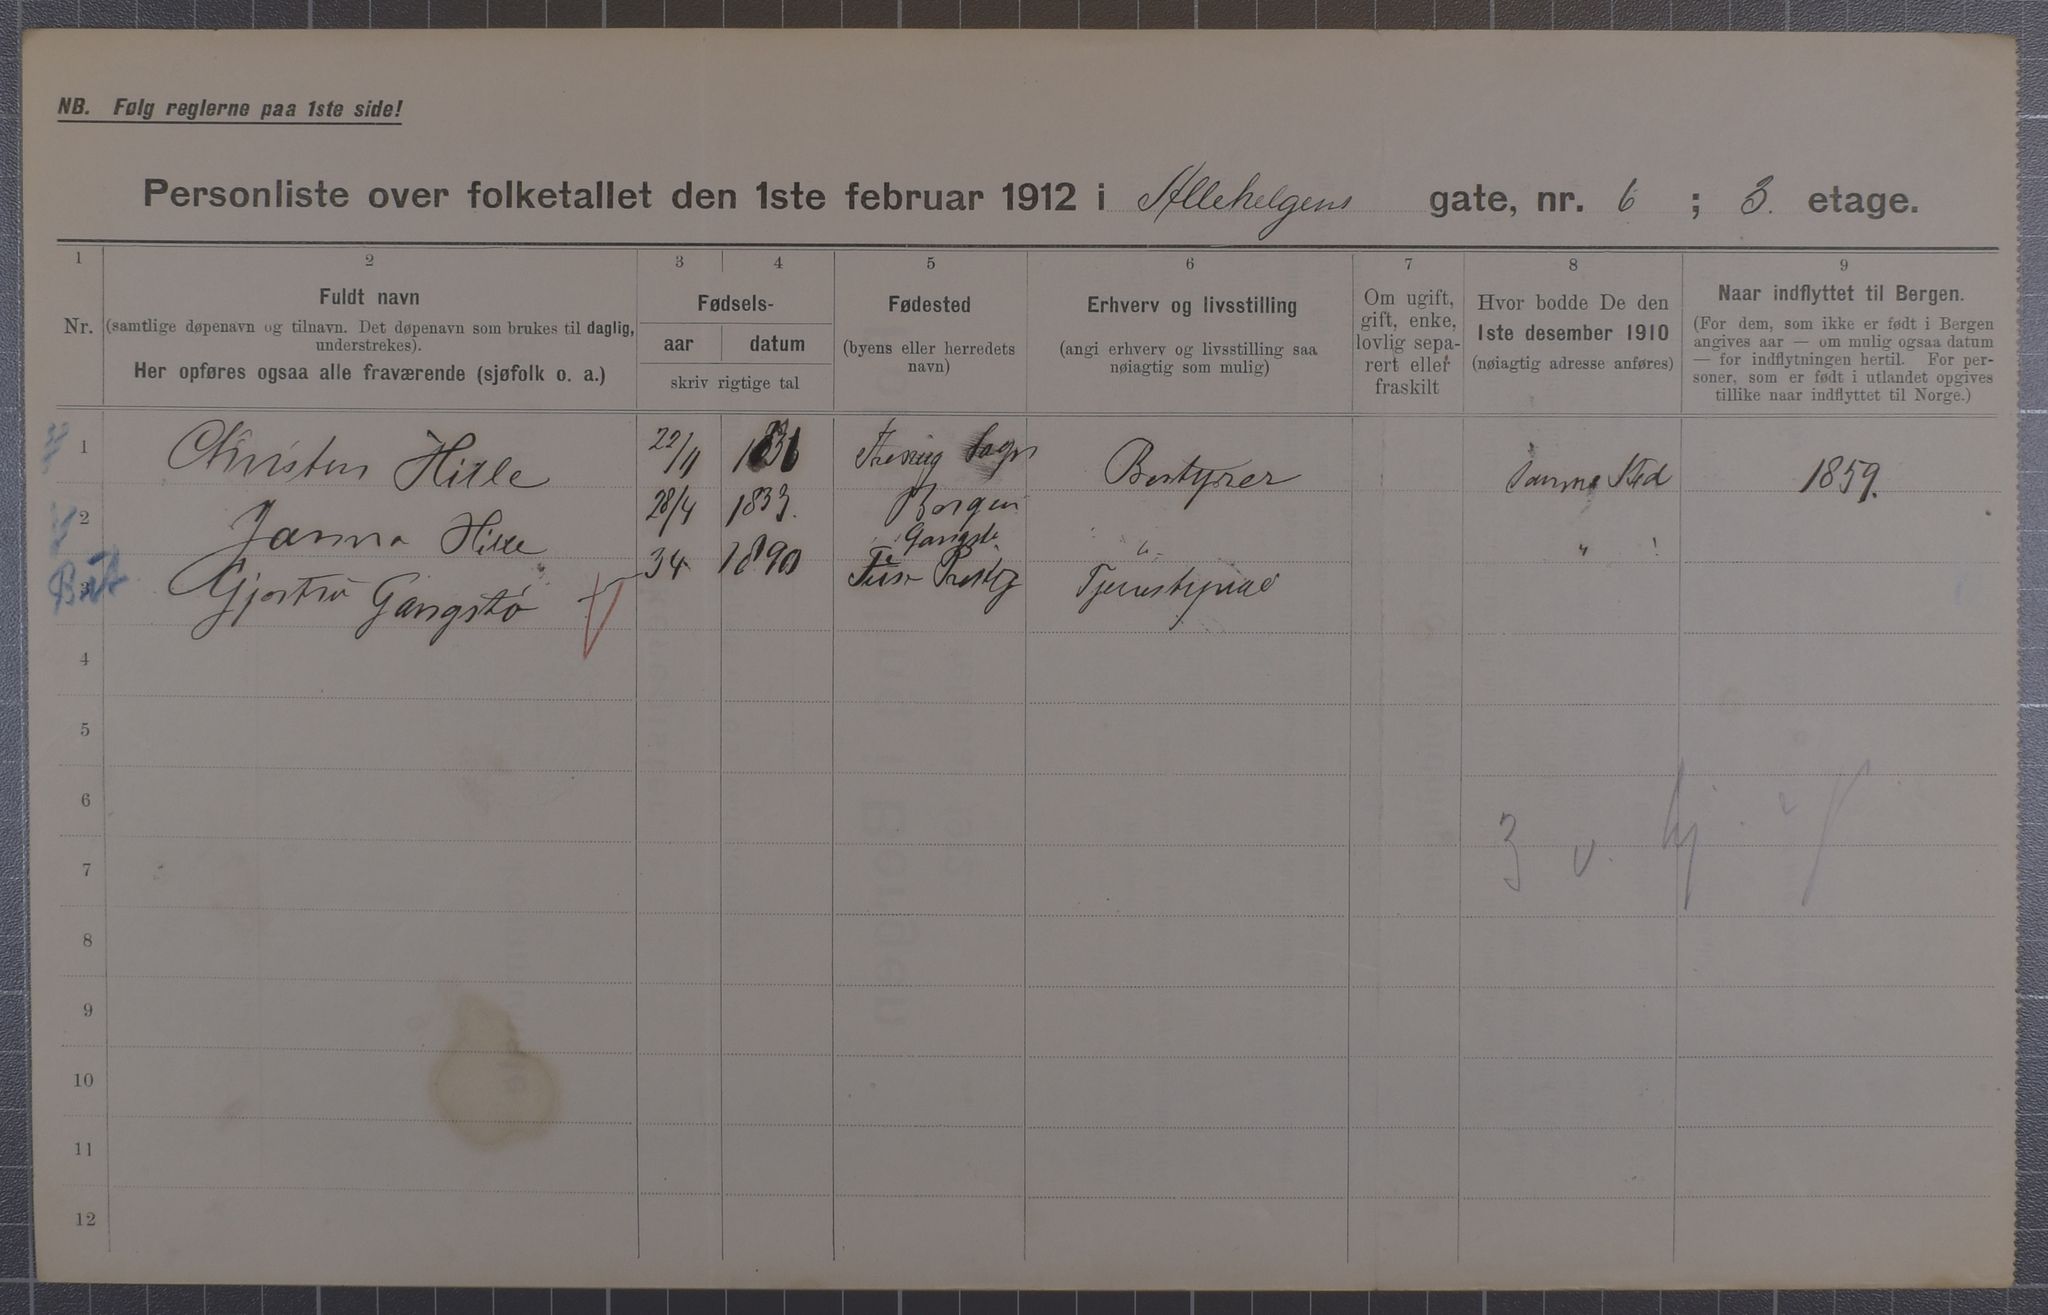 NB. Følg reglerne paa 1ste side!
Personliste over folketallet den 1ste februar 1912 i Allehelgens gate, nr. 6 ; 3. etage.
1 2 3 4 5 6 7 8 9
Nr.
Fuldt navn
(samtlige døpenavn og tilnavn. Det døpenavn som brukes til daglig, understrekes).
Her opføres ogsaa alle fraværende (sjøfolk o. a.)
Fødsels-
aar datum
skriv rigtige tal
Fødested
(byens eller herredets
navn)
Erhverv og livsstilling
(angi erhverv og livsstilling saa
nøiagtig som mulig)
Om ugift,
gift, enke,
lovlig sepa-
rert eller
fraskilt
Hvor bodde De den
1ste desember 1910
(nøiagtig adresse anføres)
Naar indflyttet til Bergen.
(For dem, som ikke er født i Bergen
angives aar — om mulig ogsaa datum
— for indflytningen hertil. For per-
soner, som er født i utlandet opgives
tillike naar indflyttet til Norge.)
1 Christen Hille 22/11 Bestyrer samme Sted 1859.
2 Janna Hille 28/4 1833. Bergen " "
3 Gangstø 34 1890 Gangstø
4
5
6
7
8
9
10
11
12
3 v.